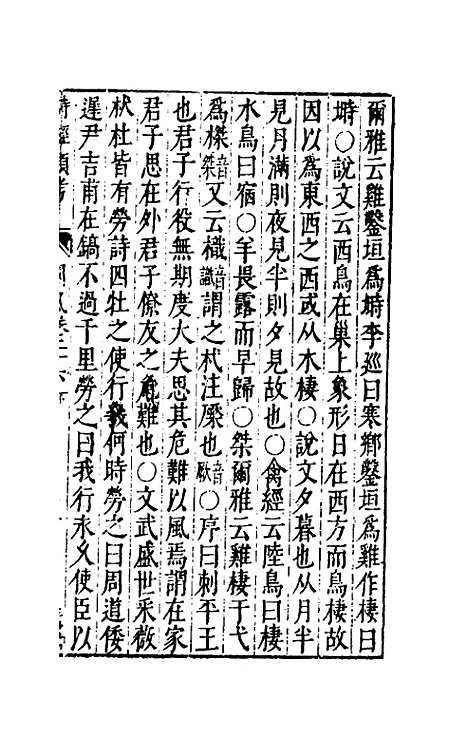 爾雅云雞鑿垣爲塒李廵曰寒鄉鑿垣爲雞作棲曰
塒○說文云西鳥在巢上象形日在西方而鳥棲故
因以爲東西之西或从木棲○說文夕暮也从月半
見月滿則夜見半則夕見故也○禽經云陸鳥曰棲
水鳥曰宿○羊畏露而早歸○桀爾雅云雞棲于弋
爲榤音桀又云樴音識謂之杙注橜也音厥○序曰刺平王
也君子行役無期度大夫思其危難以風焉謂在家
君子思在外君子僚友之危難也○文武盛世采薇
杕杜皆有勞詩四牡之使行幾何時勞之曰周道倭
遲尹吉甫在鎬不過千里勞之曰我行永久使臣以
詩經類考